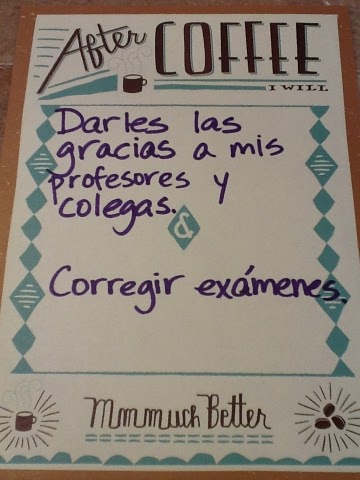 After COFFEE
I WILL
Darles las
gracias a mis
profesores y
colegas.
&
Corregir exámenes.
Mmmuch Better